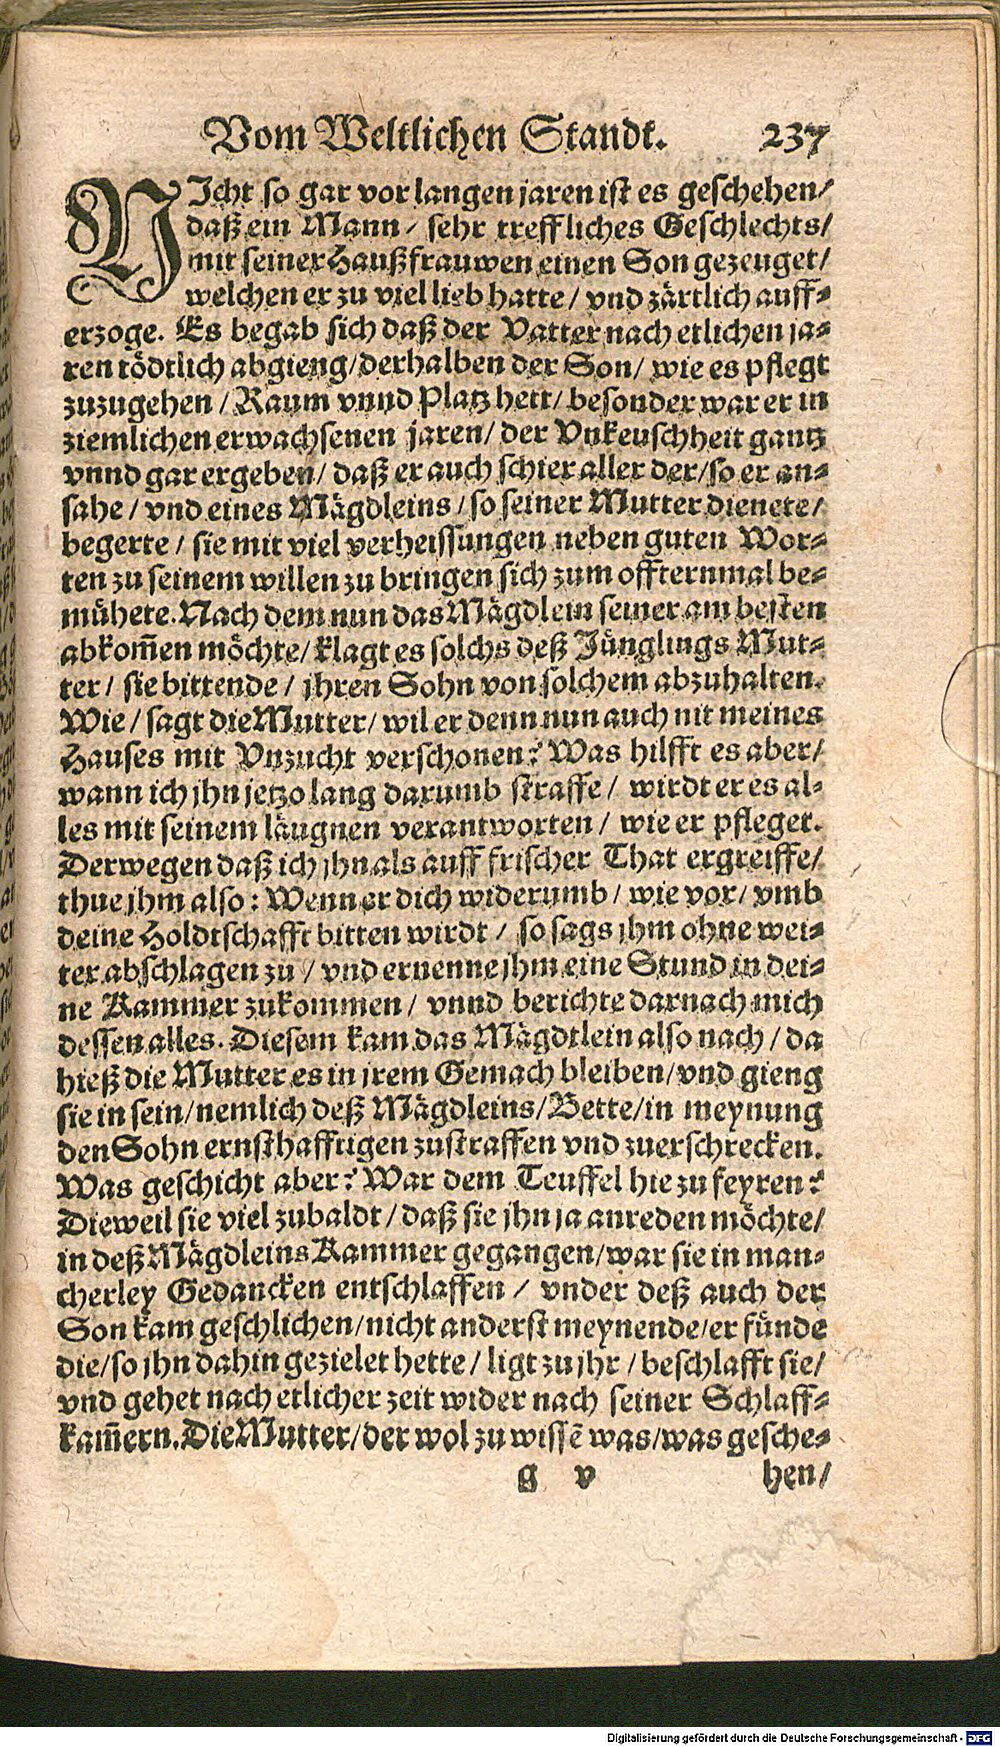 Vom Weltlichen Standt. 237
NIcht so gar vor langen jaren ist es geschehen/
daß ein Mann / sehr treffliches Geschlechts/
mit seiner Haußfrauwen einen Son gezeuget/
welchen er zu viel lieb hatte / vnd zärtlich auff-
erzoge. Es begab sich daß der Vatter nach etlichen ja-
ren tödtlich abgieng/derhalben der Son/ wie es pflegt
zuzugehen / Raum vnnd Platz hett/ besonder war er in
ziemlichen erwachsenen jaren/ der Vnkeuschheit gantz
vnnd gar ergeben/ daß er auch schier aller der/so er an-
sahe / vnd eines Mägdleins / so seiner Mutter dienete/
begerte / sie mit viel verheissungen neben guten Wor-
ten zu seinem willen zu bringen sich zum offternmal be-
mühete. Nach dem nun das Mägdlein seiner am besten
abkom̄en möchte/ klagt es solchs deß Jünglings Mut-
ter / sie bittende / jhren Sohn von solchem abzuhalten.
Wie / sagt die Mutter/ wil er denn nun auch nit meines
Hauses mit Vnzucht verschonen? Was hilfft es aber/
wann ich jhn jetzo lang darumb straffe / wirdt er es al-
les mit seinem läugnen verantworten / wie er pfleget.
Derwegen daß ich jhn als auff frischer That ergreiffe/
thue jhm also: Wenn er dich widerumb / wie vor/ vmb
deine Holdtschafft bitten wirdt / so sags jhm ohne wei-
ter abschlagen zu / vnd ernenne jhm eine Stund in dei-
ne Kammer zukommen / vnnd berichte darnach mich
dessen alles. Diesem kam das Mägdtlein also nach / da
hieß die Mutter es in jrem Gemach bleiben/vnd gieng
sie in sein/nemlich deß Mägdleins/Bette/in meynung
den Sohn ernsthafftigen zustraffen vnd zuerschrecken.
Was geschicht aber? War dem Teuffel hie zu feyren?
Dieweil sie viel zubaldt / daß sie jhn ja anreden möchte/
in deß Mägdleins Kammer gegangen/war sie in man-
cherley Gedancken entschlaffen / vnder deß auch der
Son kam geschlichen/nicht anderst meynende/er fünde
die/so jhn dahin gezielet hette / ligt zu jhr / beschlafft sie/
vnd gehet nach etlicher zeit wider nach seiner Schlaff-
kam̄ern. Die Mutter/der wol zu wissē was/was gesche-
g v hen/
Digitalisierung gefördert durch die Deutsche Forschungsgemeinschaft - DFG